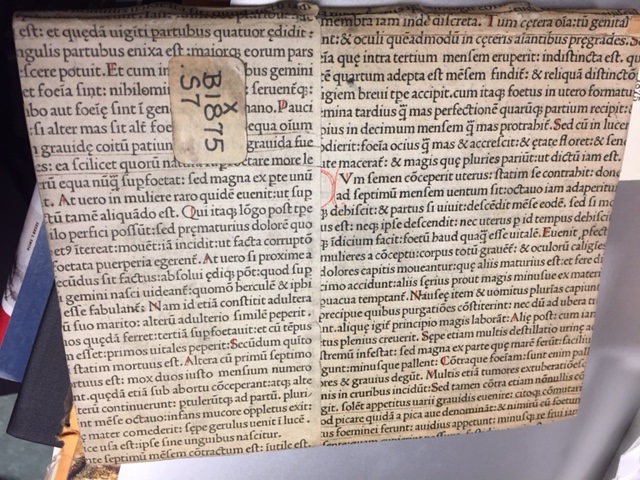 est: et quędā uigiti partubus quatuor ędidit:
ngulis partubus enixa est: maiorq; eorum pars
scere potuit. Et cum in bus gemini
et foeīa sint: nibilomi : seruenſq;:
ibo aut foeię sint ī gen ano. Pauci
si alter mas sit alf foe equa oīum
grauidę coitū patiun grauida fue
s: ea scilicet quorū natura ętare more le
rū equa nūq̄ supfoetat: sed magna ex pte unū
t. At uero in muliere raro quidē euenit: ut sup
tū tamē aliquādo est. Qui itaq; lōgo post tpe
ilo perfici possūt: sed pręmaturius dolorē quo
et9 itereat: mouēt: iā incidit: ut facta corruptō
foetata puerperia egerent. At uero si proxime a
ecūdus sit factus: absolui ędiq; pōt: quod sup
i gemini nasci uideant: quomō herculē & iphi
esse fabulant. Nam id etiā constitit adultera
ū suo marito: alterū adulterio similē peperit.
quę ferret: tertiā supfoetauit: et cū tēpus
m esset: primos uitales peperit: Secūdum quīto
statim mortuus est. Altera cū primū septimo
tuus est: mox duos iusto mensium numero
et. quędā etiā sub abortu cōceperant: atq; alte
terū continuerunt: ptulerūtq; ad partū. pluri
nt mēse octauo: infans mucore oppletus exiit:
mater comederit: sępe gerulus uenit ī lucē.
usa est: ipse sine unguibus nascitur.
te septimū mēsem cōtractum est: īutile est
B
X
1875
S7
membra iam inde discreta. Tum cętera oīa: tū genital
nt: & oculi queadmodū in cęteris aīantibus pręgrādes.
īa que intra tertium mensem eruperit: indistincta est.
ē quartum adepta est mēsem findit: & reliquā distinctō
igiem breui tpe accipit. cum itaq; foetus in utero formatu
mina tardius q̄ mas perfectionē quarūq; partium recipit:
pius in decimum mensem q̄ mas protrahit. Sed cū in lucem
odierit: foeīa ocius q̄ mas & accrescit: & ętate floret: & sene
te macerat: & magis quę pluries pariūt: ut dictū iam est.
Vm semen cōceperit uterus: statim se contrahit: donec
ad septimū mensem uentum sit: octauo iam adaperitu
q; debiscit: & partus si uiuit: descēdit mēse eodē. sed si
us est: neq; ipse descendit: nec uterus p id tempus debiscit
q; īdicium facit: foetū haud quaq̄ esse uitalē. Euenit, pfectō
mulieres a cōceptu: corpus totū grauet: & oculorū caligies
dolores capitis moueantur: que aliis maturius est: et fere di
accidunt: aliis sęrius prout magis minusue ex materi
puacua temptant. Nausęę item & uomitus plurias capiunt
precipue quibus purgatiōes cōstiterint: nec dū ad ubera tr
nt. aliquę igit principio magis laborāt: Alię post: cum iam
tus plenius creuerit. Sępe etiam multos destillatio urinę ad
stremū infestat: sed magna ex parte quę marē ferūt: facili
gunt: minusque pallent: Cōtraque foeīam: sunt enim pall
res & grauius degūt. Multis etiā tumores extuberatiōes
nis in cruribus incidūt: Sed tamen cōtra etiam nōnullis
git. solēt appetitus uarii grauidis euenire: citoq; cōmutari
od picarę quidā a pica aue denominat: & nimirū cū foetum
tus foeminei ferunt: auidius appetunt: minusque re frui